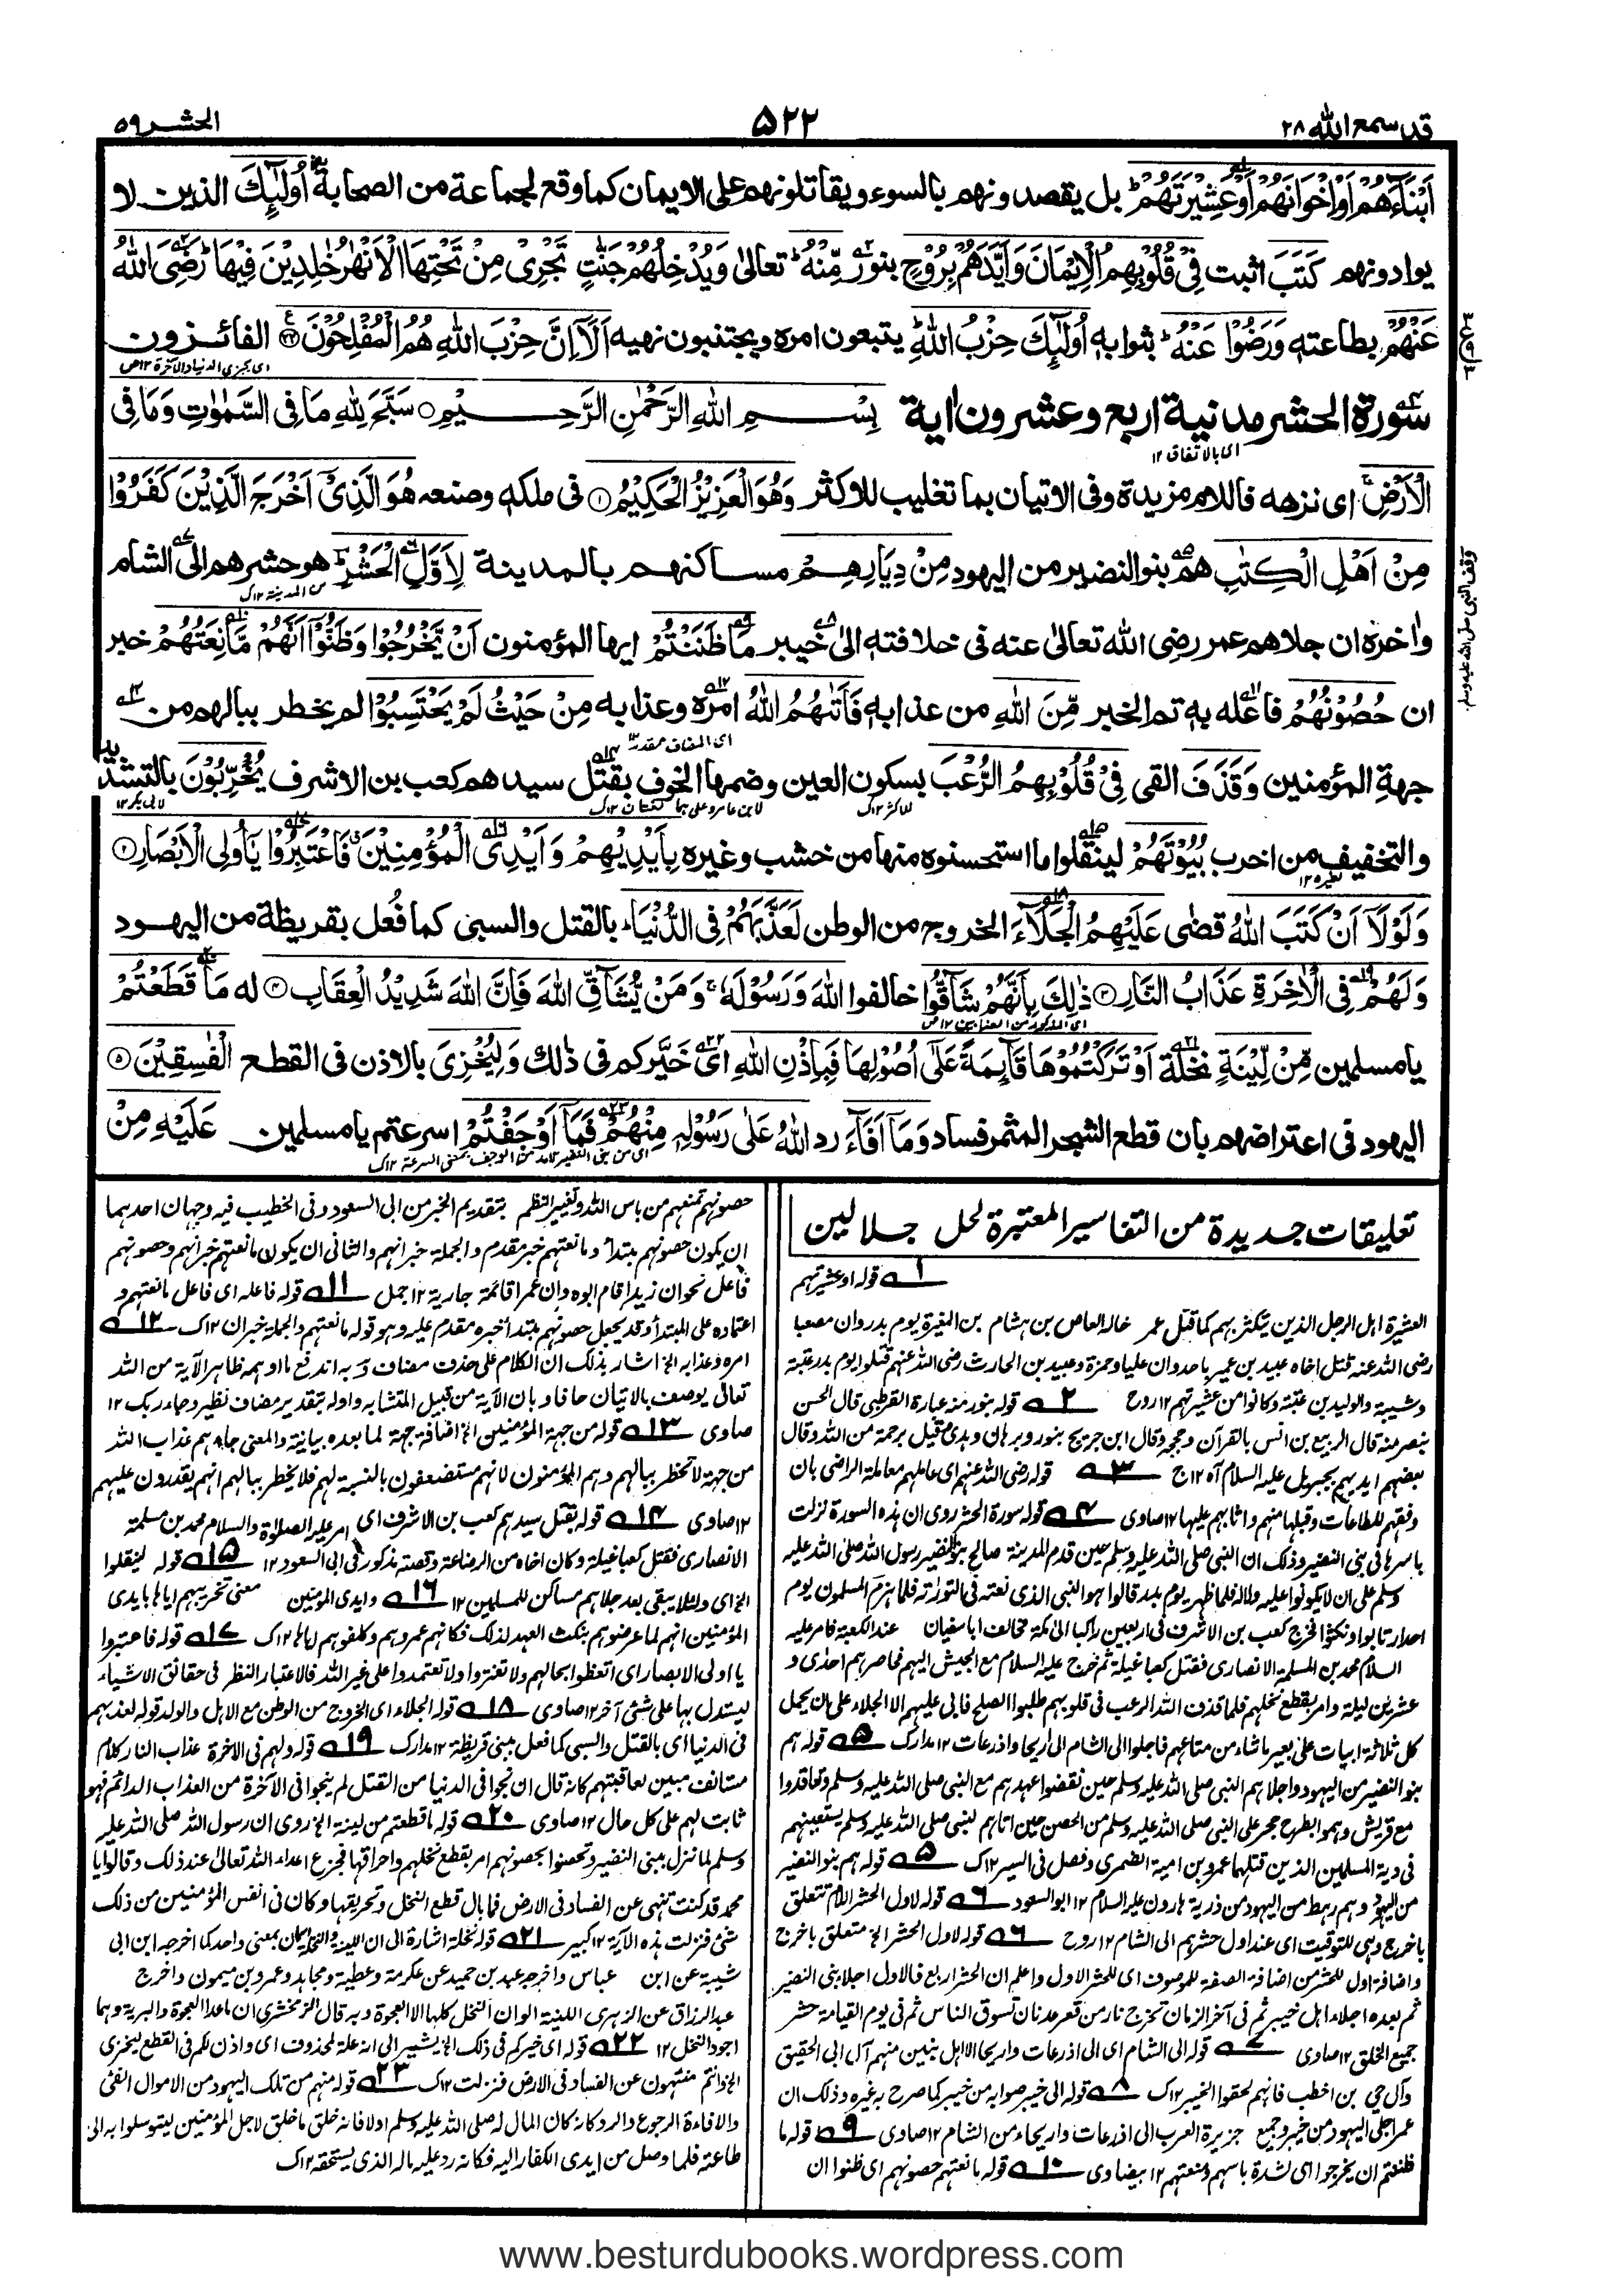 قد سمع الله ٢٨
٥٢٢
الحشر ٥٩
اَبْنَآءَهُمْ اَوْ اِخْوَانَهُمْ اَوْ عَشِيْرَتَهُمْ بل يقصدونهم بالسوء ويقاتلونهم على الايمان كما وقع لجماعة من الصحابة اُولٰٓئِكَ الذين لا
يوادونهم كَتَبَ اثبت فِيْ قُلُوْبِهِمُ الْاِيْمَانَ وَاَيَّدَهُمْ بِرُوْحٍ بنور مِّنْهُ تعالىٰ وَيُدْخِلُهُمْ جَنّٰتٍ تَجْرِيْ مِنْ تَحْتِهَا الْاَنْهٰرُ خٰلِدِيْنَ فِيْهَا رَضِيَ اللّٰهُ
عَنْهُمْ بطاعته وَرَضُوْا عَنْهُ بثوابه اُولٰٓئِكَ حِزْبُ اللّٰهِ يتبعون امره ويجتنبون نهيه اَلَآ اِنَّ حِزْبَ اللّٰهِ هُمُ الْمُفْلِحُوْنَ ٢٢ الفائزون
سورة الحشر مدنية اربع وعشرون اية بِسْمِ اللّٰهِ الرَّحْمٰنِ الرَّحِيْمِ ○ سَبَّحَ لِلّٰهِ مَا فِي السَّمٰوٰتِ وَمَا فِي
اى بالاتفاق ١٢
الْاَرْضِ اى نزهه فاللام مزيدة وفى الاتيان بما تغليب للاكثر وَهُوَ الْعَزِيْزُ الْحَكِيْمُ ١ فى ملكه وصنعه هُوَ الَّذِيْٓ اَخْرَجَ الَّذِيْنَ كَفَرُوْا
مِنْ اَهْلِ الْكِتٰبِ هم بنو النضير من اليهود مِنْ دِيَارِهِمْ مساكنهم بالمدينة لِاَوَّلِ الْحَشْرِ هو حشرهم الى الشام
من المدينة ١٢ك
وقف النبى صلى الله عليه وسلم
واٰخره ان جلاهم عمر رضى الله تعالىٰ عنه فى خلافته الىٰ خيبر مَا ظَنَنْتُمْ ايها المؤمنون اَنْ يَّخْرُجُوْا وَظَنُّوْٓا اَنَّهُمْ مَّانِعَتُهُمْ خبر
ان حُصُوْنُهُمْ فاعله به تم الخبر مِّنَ اللّٰهِ من عذابه فَاَتٰىهُمُ اللّٰهُ امره وعذابه مِنْ حَيْثُ لَمْ يَحْتَسِبُوْا لم يخطر ببالهم من
اى المضاف مقدر ١٢
جهة المؤمنين وَقَذَفَ القى فِيْ قُلُوْبِهِمُ الرُّعْبَ بسكون العين وضمها الخوف بقتل سيدهم كعب بن الاشرف يُخَرِّبُوْنَ بالتشديد
والتخفيف من اخرب بُيُوْتَهُمْ لينقلوا ما استحسنوه منها من خشب وغيره بِاَيْدِيْهِمْ وَاَيْدِى الْمُؤْمِنِيْنَ فَاعْتَبِرُوْا يٰٓاُولِى الْاَبْصَارِ ٢
وَلَوْلَآ اَنْ كَتَبَ اللّٰهُ قضٰى عَلَيْهِمُ الْجَلَآءَ الخروج من الوطن لَعَذَّبَهُمْ فِى الدُّنْيَا بالقتل والسبى كما فُعل بقريظة من اليهود
وَلَهُمْ فِى الْاٰخِرَةِ عَذَابُ النَّارِ ٣ ذٰلِكَ بِاَنَّهُمْ شَآقُّوا خالفوا اللّٰهَ وَرَسُوْلَهٗ وَمَنْ يُّشَآقِّ اللّٰهَ فَاِنَّ اللّٰهَ شَدِيْدُ الْعِقَابِ ٤ له مَا قَطَعْتُمْ
اى المذكور من العذابين ١٢ص
يا مسلمين مِّنْ لِّيْنَةٍ نخلة اَوْ تَرَكْتُمُوْهَا قَآئِمَةً عَلٰٓى اُصُوْلِهَا فَبِاِذْنِ اللّٰهِ اى خيّركم فى ذٰلك وَلِيُخْزِىَ بالاذن فى القطع الْفٰسِقِيْنَ ٥
اليهود فى اعتراضهم بان قطع الشجر المثمر فساد وَمَآ اَفَآءَ رد اللّٰهُ عَلٰى رَسُوْلِهٖ مِنْهُمْ فَمَآ اَوْجَفْتُمْ اسرعتم يا مسلمين عَلَيْهِ مِنْ
تعليقات جديدة من التفاسير المعتبرة لحل جلالين
١ قوله او عشيرتهم
العشيرة اهل الرجل الذين يتكثر بهم كما قتل عمر خاله العاص بن هشام بن المغيرة يوم بدر وان مصعبا
رضى الله عنه قتل اخاه عبيد بن عمير باحد وان عليا وحمزة وعبيد بن الحارث رضى الله عنهم قتلوا يوم بدر عتبة
وشيبة والوليد بن عتبة وكانوا من عشيرتهم ١٢ روح ٢ قوله بنور منه عبارة القرطبى قال الحسن
بنصر منه قال الربيع بن انس بالقرآن وحججه وقال ابن جريج بنور وبرهان وهدى وقيل برحمة من الله وقال
بعضهم ايدهم بجبريل عليه السلام آه ١٢ج ٣ قوله رضى الله عنهم اى عاملهم معاملة الراضى بان
وفقهم للطاعات وقبلها منهم واثابهم عليها ١٢ صاوى ٤ قوله سورة الحشر روى ان هذه السورة نزلت
باسرها فى بنى النضير وذلك ان النبى صلى الله عليه وسلم حين قدم المدينة صالح بنو النضير رسول الله صلى الله عليه
وسلم على ان لا يكونوا عليه ولا له فلما ظهر يوم بدر قالوا هو النبى الذى نعته فى التوراة فلما هزم المسلمون يوم
احد ارتابوا ونكثوا فخرج كعب بن الاشرف فى اربعين راكبا الى مكة فحالف ابا سفيان عند الكعبة فامر عليه
السلام محمد بن المسلمة الانصارى فقتل كعبا غيلة ثم خرج عليه السلام مع الجيش اليهم فحاصرهم احدى و
عشرين ليلة وامر بقطع نخلهم فلما قذف الله الرعب فى قلوبهم طلبوا الصلح فابى عليهم الا الجلاء على ان يحمل
كل ثلاثة ابيات على بعير ما شاء من متاعهم فاجلوا الى الشام الى اريحا واذرعات ١٢ مدارك ٥ قوله هم
بنو النضير من اليهود واجلاهم النبى صلى الله عليه وسلم حين نقضوا عهدهم مع النبى صلى الله عليه وسلم وتعاقدوا
مع قريش وهموا بطرح حجر على النبى صلى الله عليه وسلم من الحصن حين اتاهم النبى صلى الله عليه وسلم يستعينهم
فى دية المسلمين الذين قتلهما عمرو بن امية الضمرى وفصل فى السير ١٢ك ٥ قوله هم بنو النضير
من اليهود وهم رهط من اليهود من ذرية هارون عليه السلام ١٢ ابو السعود ٦ قوله لاول الحشر اللام تتعلق
باخرج وهى للتوقيت اى عند اول حشرهم الى الشام ١٢ روح ٦ قوله لاول الحشر الخ متعلق باخرج
واضافة اول للحشر من اضافة الصفة للموصوف اى للحشر الاول واعلم ان الحشر اربع فالاول اجلاء بنى النضير
ثم بعده اجلاء اهل خيبر ثم فى آخر الزمان تخرج نار من قعر عدنان تسوق الناس ثم فى يوم القيامة حشر
جميع الخلق ١٢ صاوى ٧ قوله الى الشام اى الى اذرعات واريحا الا اهل بيتين منهم آل ابى الحقيق
وآل حيى بن اخطب فانهم لحقوا الخيبر ١٢ك ٨ قوله الى خيبر صوابه من خيبر كما صرح به غيره وذلك ان
عمر اجلى اليهود من خيبر وجميع جزيرة العرب الى اذرعات واريحاء من الشام ١٢ صاوى ٩ قوله ما
ظننتم ان يخرجوا اى لشدة باسهم ومنعتهم ١٢ بيضاوى ١٠ قوله مانعتهم حصونهم اى ظنوا ان
حصونهم تمنعهم من باس الله وتغيير النظم بتقديم الخبر من ابى السعود وفى الخطيب فيه وجهان احدهما
ان يكون حصونهم مبتدأ ومانعتهم خبر مقدم والجملة خبر انهم والثانى ان يكون مانعتهم خبر انهم وحصونهم
فاعل نحو ان زيدا قام ابوه وان عمرا قائمة جارية ١٢ جمل ١١ قوله فاعله اى فاعل مانعتهم و
اعتماده على المبتدأ وقد يجعل حصونهم مبتدأ خبره مقدم عليه وهو قوله مانعتهم والجملة خبر ان ١٢ك ١٢
امره وعذابه الخ اشار بذلك ان الكلام على حذف مضاف وبه اندفع ما اوهمه ظاهر الآية من الله
تعالى يوصف بالاتيان حافاد بان الآية من قبيل المتشابه واوله بتقدير مضاف نظير وجاء ربك ١٢
صاوى ١٣ قوله من جهة المؤمنين الخ اضافة جهة لما بعده بيانية والمعنى جاءهم عذاب الله
من جهة لا تخطر ببالهم وهم المؤمنون لانهم مستضعفون بالنسبة لهم فلا يخطر ببالهم انهم يقدرون عليهم
١٢ صاوى ١٤ قوله بقتل سيدهم كعب بن الاشرف اى امر عليه الصلاة والسلام محمد بن مسلمة
الانصارى فقتل كعبا غيلة وكان اخاه من الرضاعة وقصته مذكور فى ابى السعود ١٢ ١٥ قوله لينقلوا
الخ اى ولئلا يبقى بعد جلاهم مساكن للمسلمين ١٢ ١٦ وايدى المؤمنين معنى تخريبهم اياها بايدى
المؤمنين انهم لما عرضوهم بنكث العهد لذلك فكانهم عمروهم وكلفوهم اياها ١٢ك ١٧ قوله فاعتبروا
يا اولى الابصار اى اتعظوا بحالهم ولا تغتروا ولا تعتمدوا على غير الله فالاعتبار النظر فى حقائق الاشياء
ليستدل بها على شئ آخر ١٢ صاوى ١٨ قوله الجلاء اى الخروج من الوطن مع الاهل والولد قوله لعذبهم
فى الدنيا اى بالقتل والسبى كما فعل ببنى قريظة ١٢ مدارك ١٩ قوله ولهم فى الآخرة عذاب النار كلام
مستانف مبين لعاقبتهم كانه قال ان نجوا فى الدنيا من القتل لم ينجوا فى الآخرة من العذاب الدائم فهو
ثابت لهم على كل حال ١٢ صاوى ٢٠ قوله ما قطعتم من لينة الخ روى ان رسول الله صلى الله عليه
وسلم لما نزل ببنى النضير وتحصنوا بحصونهم امر بقطع نخلهم واحراقها فجزع اعداء الله تعالىٰ عند ذلك وقالوا يا
محمد قد كنت تنهى عن الفساد فى الارض فما بال قطع النخل وتحريقها وكان فى انفس المؤمنين من ذلك
شئ فنزلت هذه الآية ١٢ كبير ٢١ قوله نخلة اشارة الى ان اللينة والنخلة بمعنى واحد كما اخرجه ابن ابى
شيبة عن ابن عباس واخرجه عبد بن حميد عن عكرمة وعطية ومجاهد وعمرو بن ميمون واخرج
عبد الرزاق عن الزهرى اللينة الوان النخل كلها الا العجوة وبه قال الزمخشرى ان ما عدا العجوة والبرية وهما
اجود النخل ١٢ ٢٢ قوله اى خيركم فى ذلك الخ يشير الى انه علة لمحذوف اى واذن لكم فى القطع ليخزى
الخ وانتم منتهون عن الفساد فى الارض فنزلت ١٢ك ٢٣ قوله منهم من تلك اليهود من الاموال الفئ
والافاءة الرجوع والرد وكانه كان المال له صلى الله عليه وسلم اولا فانه خلق ما خلق لاجل المؤمنين ليتوسلوا به الى
طاعته فلما وصل من ايدى الكفار اليه فكانه رد عليه ماله الذى يستحقه ١٢ك
www.besturdubooks.wordpress.com